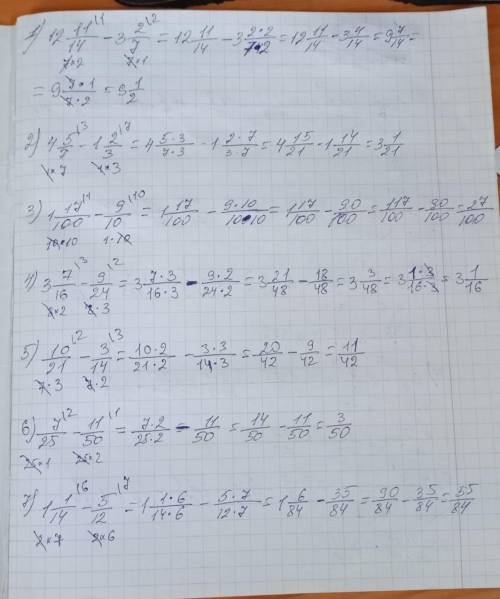 1) 12 11/14 \1 - 3 2/7 \2 = 12 11/14 - 3 2·2/7·2 = 12 11/14 - 3 4/14 = 9 7/14 =
7·2 7·1
= 9 7·1/7·2 = 9 1/2
2) 4 5/7 \3 - 1 2/3 \7 = 4 5·3/7·3 - 1 2·7/3·7 = 4 15/21 - 1 14/21 = 3 1/21
1·7 1·3
3) 1 17/100 \1 - 9/10 \10 = 1 17/100 - 9·10/10·10 = 1 17/100 - 90/100 = 117/100 - 90/100 = 27/100
10·10 1·10
4) 3 7/16 \3 - 9/24 \2 = 3 7·3/16·3 - 9·2/24·2 = 3 21/48 - 18/48 = 3 3/48 = 3 1·3/16·3 = 3 1/16
8·2 8·3
5) 10/21 \2 - 3/14 \3 = 10·2/21·2 - 3·3/14·3 = 20/42 - 9/42 = 11/42
7·3 7·2
6) 7/25 \2 - 11/50 \1 = 7·2/25·2 - 11/50 = 14/50 - 11/50 = 3/50
25·1 25·2
7) 1 1/14 \6 - 5/12 \7 = 1 1·6/14·6 - 5·7/12·7 = 1 6/84 - 35/84 = 90/84 - 35/84 = 55/84
2·7 2·6